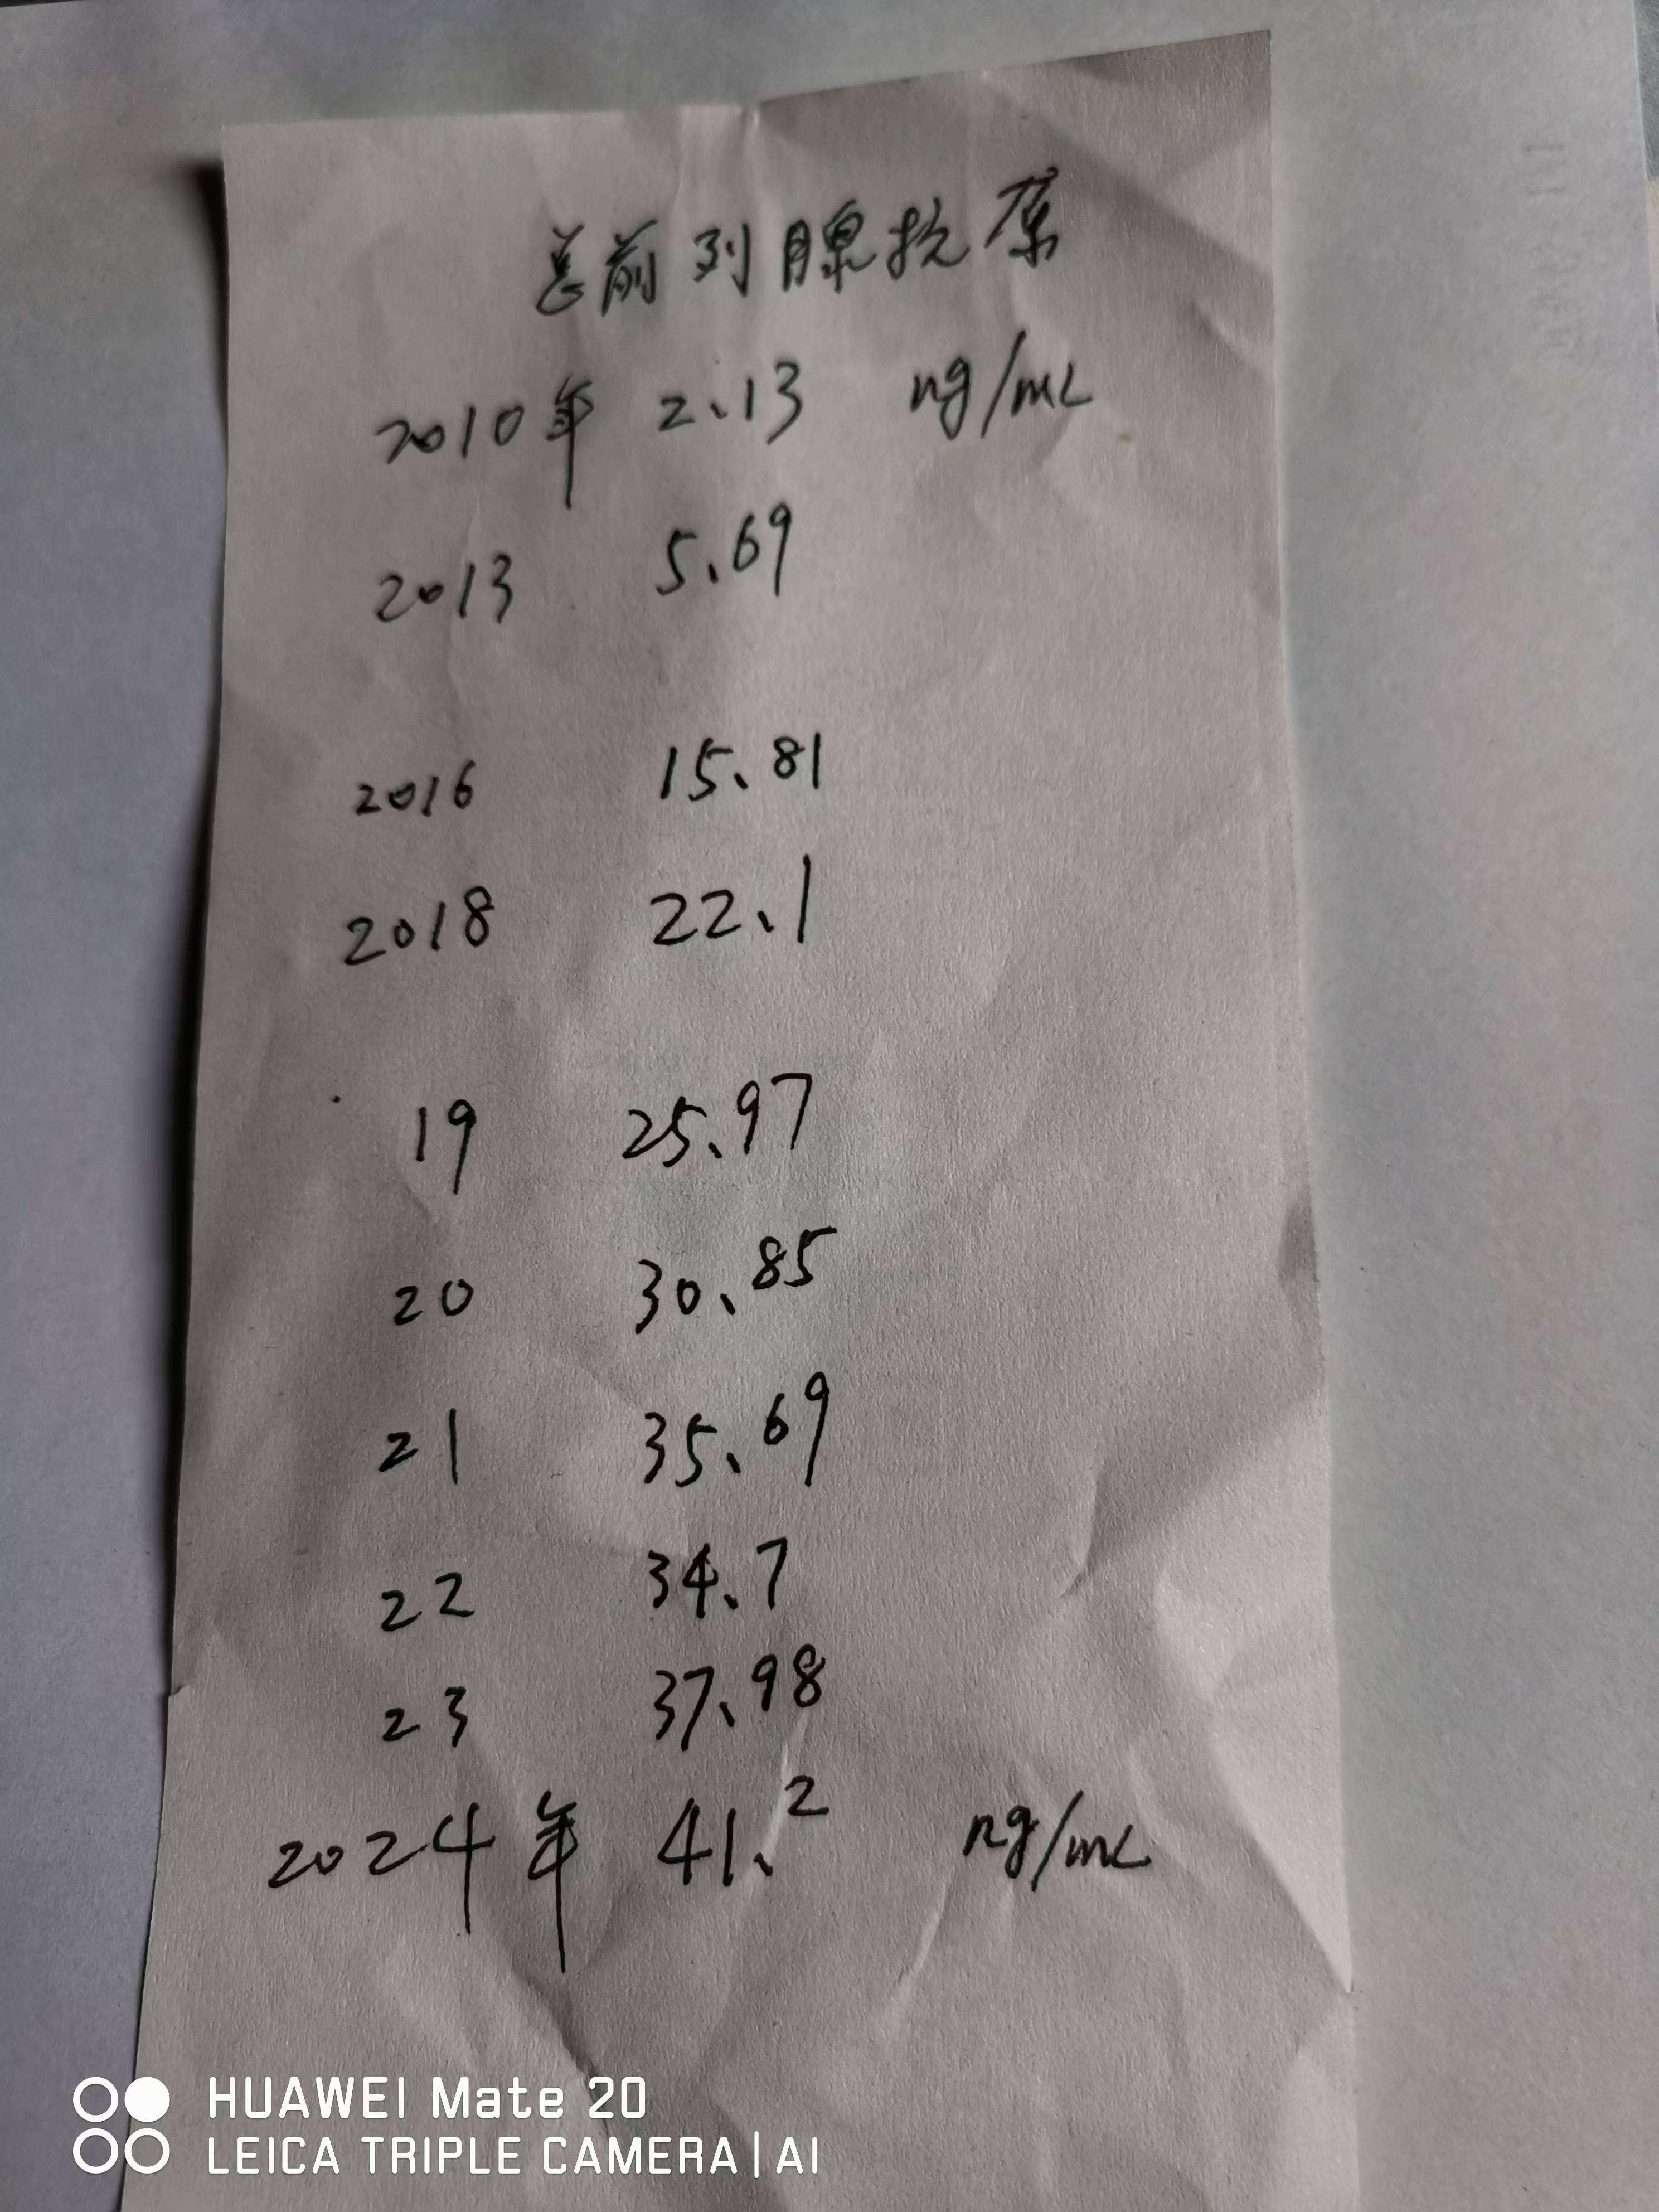 总前列腺抗原
2010年 2.13 ng/mL
2013 5.69
2016 15.81
2018 22.1
19 25.97
20 30.85
21 35.69
22 34.7
23 37.98
2024年 41.2 ng/mL
HUAWEI Mate 20
LEICA TRIPLE CAMERA | AI